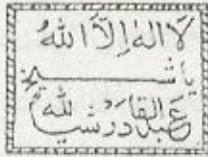 لا اله إلا الله
يا شيخ
عبد القادر شيا لله